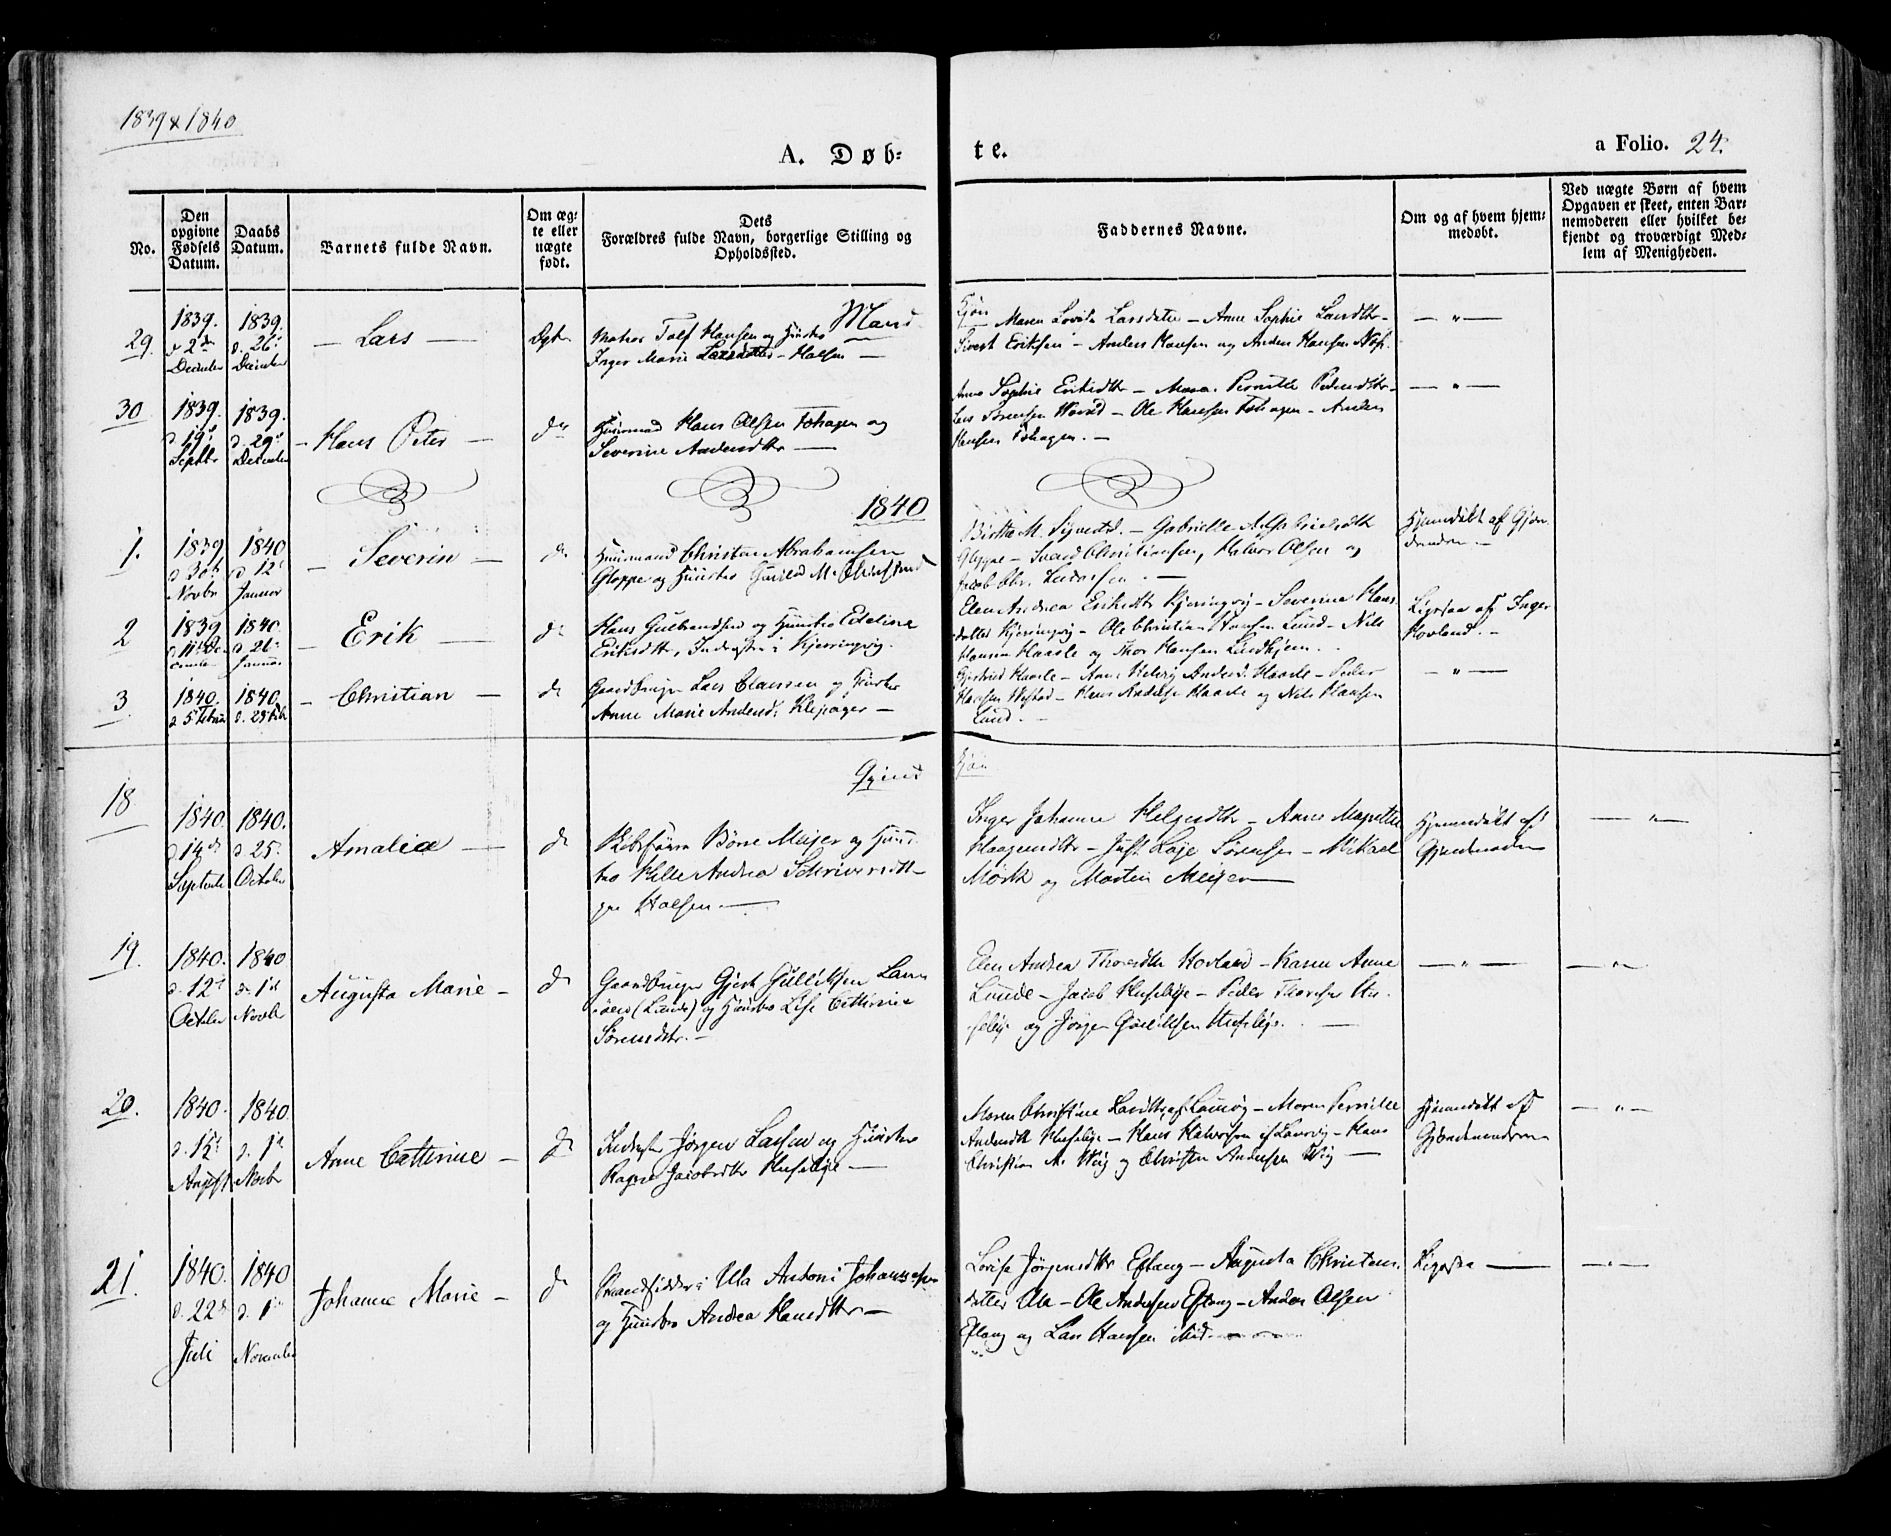 1839 & 1840
A. Døb-
te.
a Folio. 24.
No.
Den opgivne Fødsels Datum.
Daabs Datum.
Barnets fulde Navn.
Om æg-te eller uægte født.
Dets Forældres fulde Navn, borgerlige Stilling og Opholdssted.
Faddernes Navne.
Om og af hvem hjem-medøbt.
Ved uægte Børn af hvem Opgaven er skeet, enten Bar-nemoderen eller hvilket be-kjendt og troværdigt Med-lem af Menigheden.
Mand
Kjøn
29.
1839. d. 2den December
1839. d. 26de December
Lars
Ægte
Hansen og Hustro
Inger Marie Larsdatter - Halsen
Maren Lovise Larsdatter - Anne Sophie
Sivert Eriksen - Anders Hansen og Anders Hansen
— " —
30
1839. d. 19de Septbr
1839. d. 29de December
Hans Peter
do
Huusmand Hans Olsen Fohagen og
Severine Andersdtr
Anne Sophie Eriksdtr - Maren Pernille Pedersdtr -
Lars Sørensen - Ole Hansen Fohagen - Anders
Hansen Fohagen. -
— " —
1840
1.
1839 d 30te Novbr
1840 d 12te Januar
Severin
do
Huusmand Christen Abrahamsen
Gloppe og Hustro Gunild M.
Birthe M. - Gabrielle A. Gabrielsdtr
Gloppe - Svend Christiansen, Halvor Olsen og
Jacob Chr.
Hjemmedøbt af Gjor-
demoderen. -
2
1839 d 11te December
1840. d. 26de Januar
Erik
do
Hans Gulbrandsen og Hustro Edeline
Eriksdtr, Inderster i Kjerringvig.
Elen Andrea Eriksdtr Kjerringvig - Severine Hans-
datter Kjerringvig - Ole Christian Hansen Lund - Nils
Hansen Haasle og Thor Hansen Lindhjem.
Ligesaa af Inger
Hovland. -
3
1840. d 5te Februar
1840. d. 23de Feb
Christian
do
Gaardbruger Lars Clausen og Hustro
Anne Marie Andersd: Klepager -
Haasle - Anne Helvig Andersd. Haasle - Peder
Hansen - Hans Andersen Haasle og Nils Hansen
Lund. -
— " —
Qvind
Kjøn
18
1840. d 14de Septembr
1840. d. 25de October
Amalia
do
Børre Meijer og Huus-
tro Helle Andrea Schriversdtt-
Halsen.
Inger Johanne Helgesdtr - Anne Margrethe
Haagensdtr - Just Laje Sørensen - Mikael
Mörk og Martin Meijer
Hjemmedøbt af
Gjordemoderen
— " —
19.
1840. d. 12te October
1840 d. 1ste Novbr
Augusta Marie
do
Gaardbruger Gjert Gullichsen
(Lunde) og Hustro Lise Cathrine
Sørensdtr. -
Elen Andrea Thoresdtr Hovland - Karen Anne
Lunde - Jacob Huseblje - Peder Thoresen Hu-
seblje og Jørgen Gullichsen Huseblje.
— " —
— " —
20.
1840. d. 15de August
1840 d. 1ste Novbr
Anne Cathrine
do
Inderster Jørgen Larsen og Hustro
Jacobsdtr Huseblje
Maren Christine Larsdtr af Laurvig - Maren Pernille
Andersdtr Huseblje - Hans Halvorsen af Laurvig - Hans
Christian A. Wiig og Christen Andersen Wiig
Hjemmedøbt af
Gjordemoderen
— " —
21.
1840. d. 22de Juli
1840 d. 1ste November
Johanne Marie
do
Strandsidder i Ula Antoni Johannesen
og Hustro Andrea Hansdtr
Lovise Jørgensdtr Eftang - Augusta Christens-
datter Ula - Ole Andersen Eftang - Anders Olsen
Eftang og Lars Hansen
Ligesaa
— " —